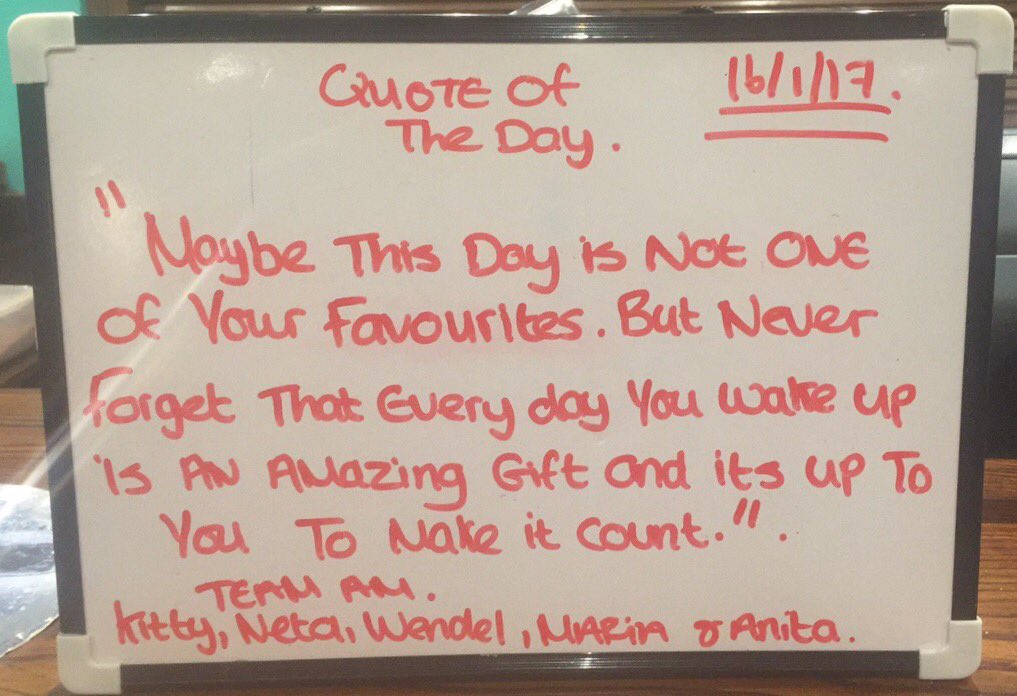 QUOTE OF
The Day.
16/1/17.
"Maybe This Day is Not ONE
of Your Favourites. But Never
Forget That Every day You wake up
is AN AMazing Gift and its up To
You To Make it count.".
TEAM AM.
Kitty, Neta, Wendel, MARiA & Anita.